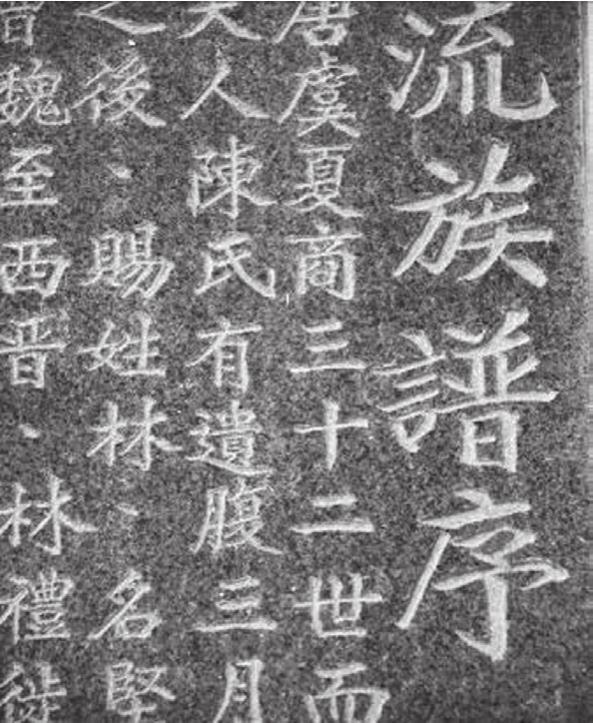 流族譜序
唐虞夏商三十二世而
夫人陳氏有遺腹三月
之後、賜姓林、名堅
晉魏至西晋、林禮徙